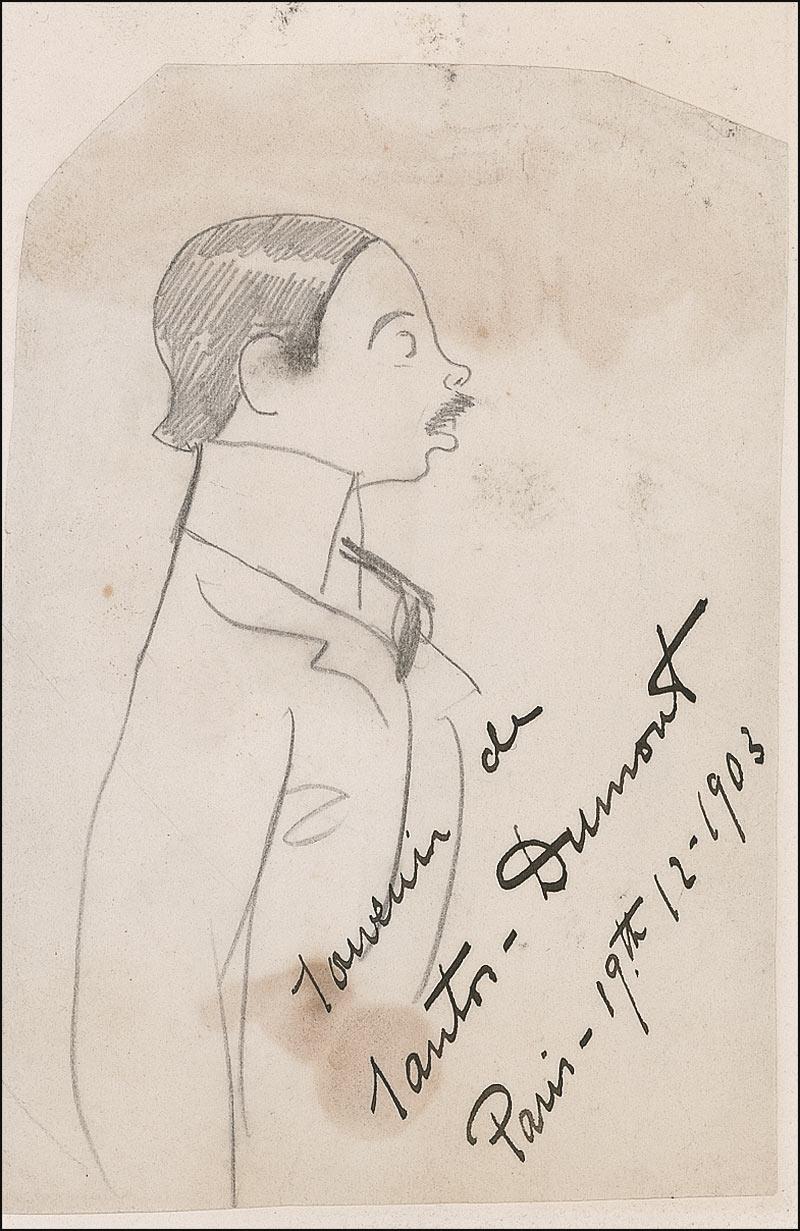 Souvenir de
Santos-Dumont
Paris - 19th 12-1903